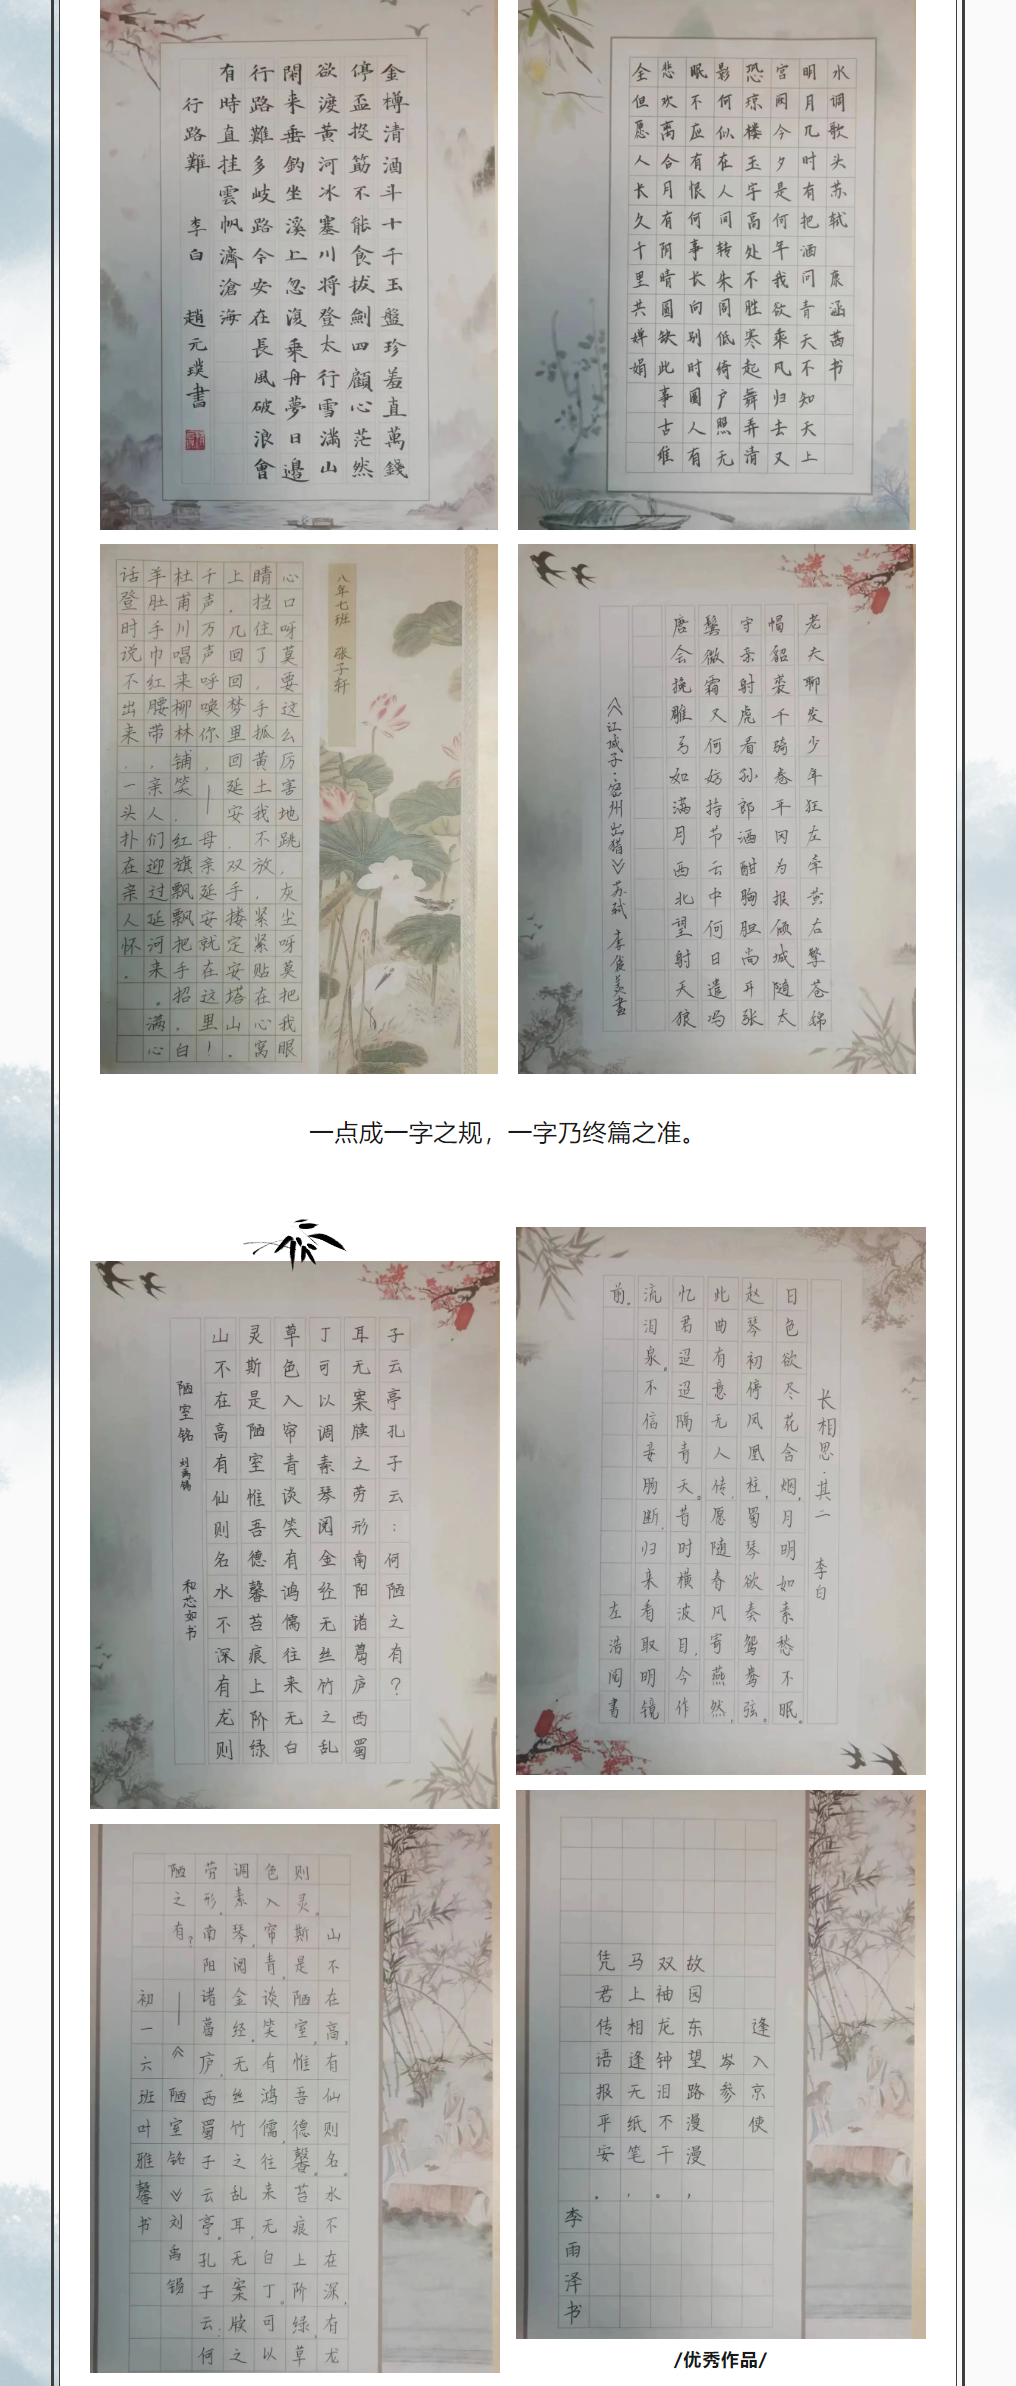 金樽清酒斗十千玉盤珍羞直萬錢
停盃投筯不能食拔劍四顧心茫然
欲渡黃河冰塞川将登太行雪滿山
閑来垂釣坐溪上忽復乗舟夢日邊
行路難多岐路今安在長風破浪會
有時直挂雲帆濟滄海
行路難 李白 趙元璞書
水调歌头苏轼 康涵茜书
明月几时有把酒问青天不知天上
宫阙今夕是何年我欲乘风归去又
恐琼楼玉宇高处不胜寒起舞弄清
影何似在人间转朱阁低绮户照无
眠不应有恨何事长向别时圆人有
悲欢离合月有阴晴圆缺此事古难
全但愿人长久千里共婵娟
八年七班 张子轩
心口呀莫要这么厉害地跳,灰尘呀莫把我眼
睛挡住了,手抓黄土我不放,紧紧贴在心窝
上.几回回梦里回延安,双手搂定安塔山.
千声万声呼唤你,——母亲延安就在这里!
杜甫川唱来柳林铺笑.红旗飘飘把手招.白
羊肚手巾红腰带,亲人们迎过延河来。满心
话登时说不出来,一头扑在亲人怀.
老夫聊发少年狂左牵黄右擎苍锦
帽貂裘千骑卷平冈为报倾城随太
守亲射虎看孙郎酒酣胸胆尚开张
鬓微霜又何妨持节云中何日遣冯
唐会挽雕弓如满月西北望射天狼
《江城子·密州出猎》苏轼 李俊美書
一点成一字之规，一字乃终篇之准。
子云亭孔子云:何陋之有?
耳无案牍之劳形南阳诸葛庐西蜀
丁可以调素琴阅金经无丝竹之乱
草色入帘青谈笑有鸿儒往来无白
灵斯是陋室惟吾德馨苔痕上阶绿
山不在高有仙则名水不深有龙则
陋室铭 刘禹锡 和芯如书
长相思·其二 李白
日色欲尽花含烟,月明如素愁不眠。
赵琴初停凤凰柱,蜀琴欲奏鸳鸯弦。
此曲有意无人传,愿随春风寄燕然,
忆君迢迢隔青天。昔时横波目,今作
流泪泉。不信妾肠断,归来看取明镜
前。 左浩阅書
山不在高,有仙则名。水不在深,有龙
则灵。斯是陋室,惟吾德馨。苔痕上阶绿,草
色入帘青,谈笑有鸿儒,往来无白丁。可以
调素琴,阅金经。无丝竹之乱耳,无案牍之
劳形,南阳诸葛庐,西蜀子云亭。孔子云:何
陋之有? ——《陋室铭》刘禹锡
初一六班叶雅馨书
逢入京使
岑参
故园东望路漫漫,
双袖龙钟泪不干。
马上相逢无纸笔,
凭君传语报平安。
李雨泽书
/优秀作品/